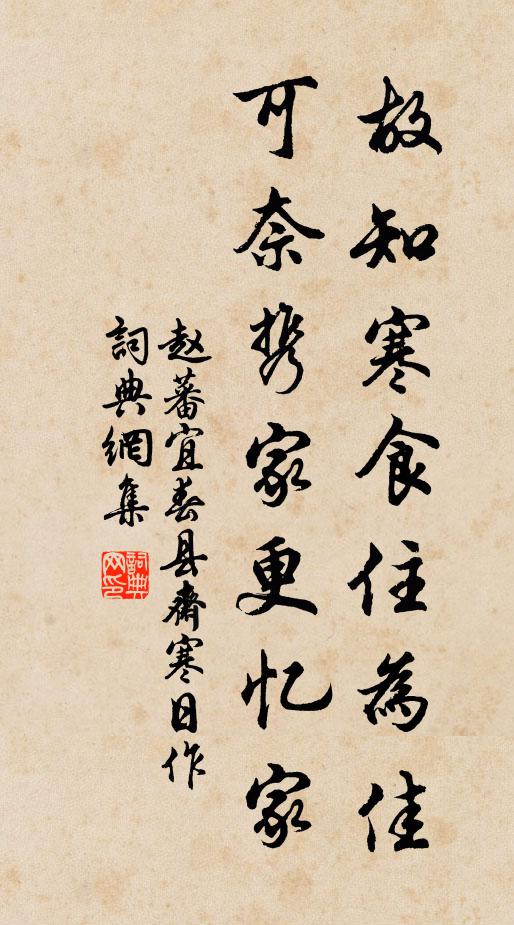 故知寒食住為佳
可奈携家更忆家
赵蕃宜春县齋寒日作
詞典網集
詞典網印